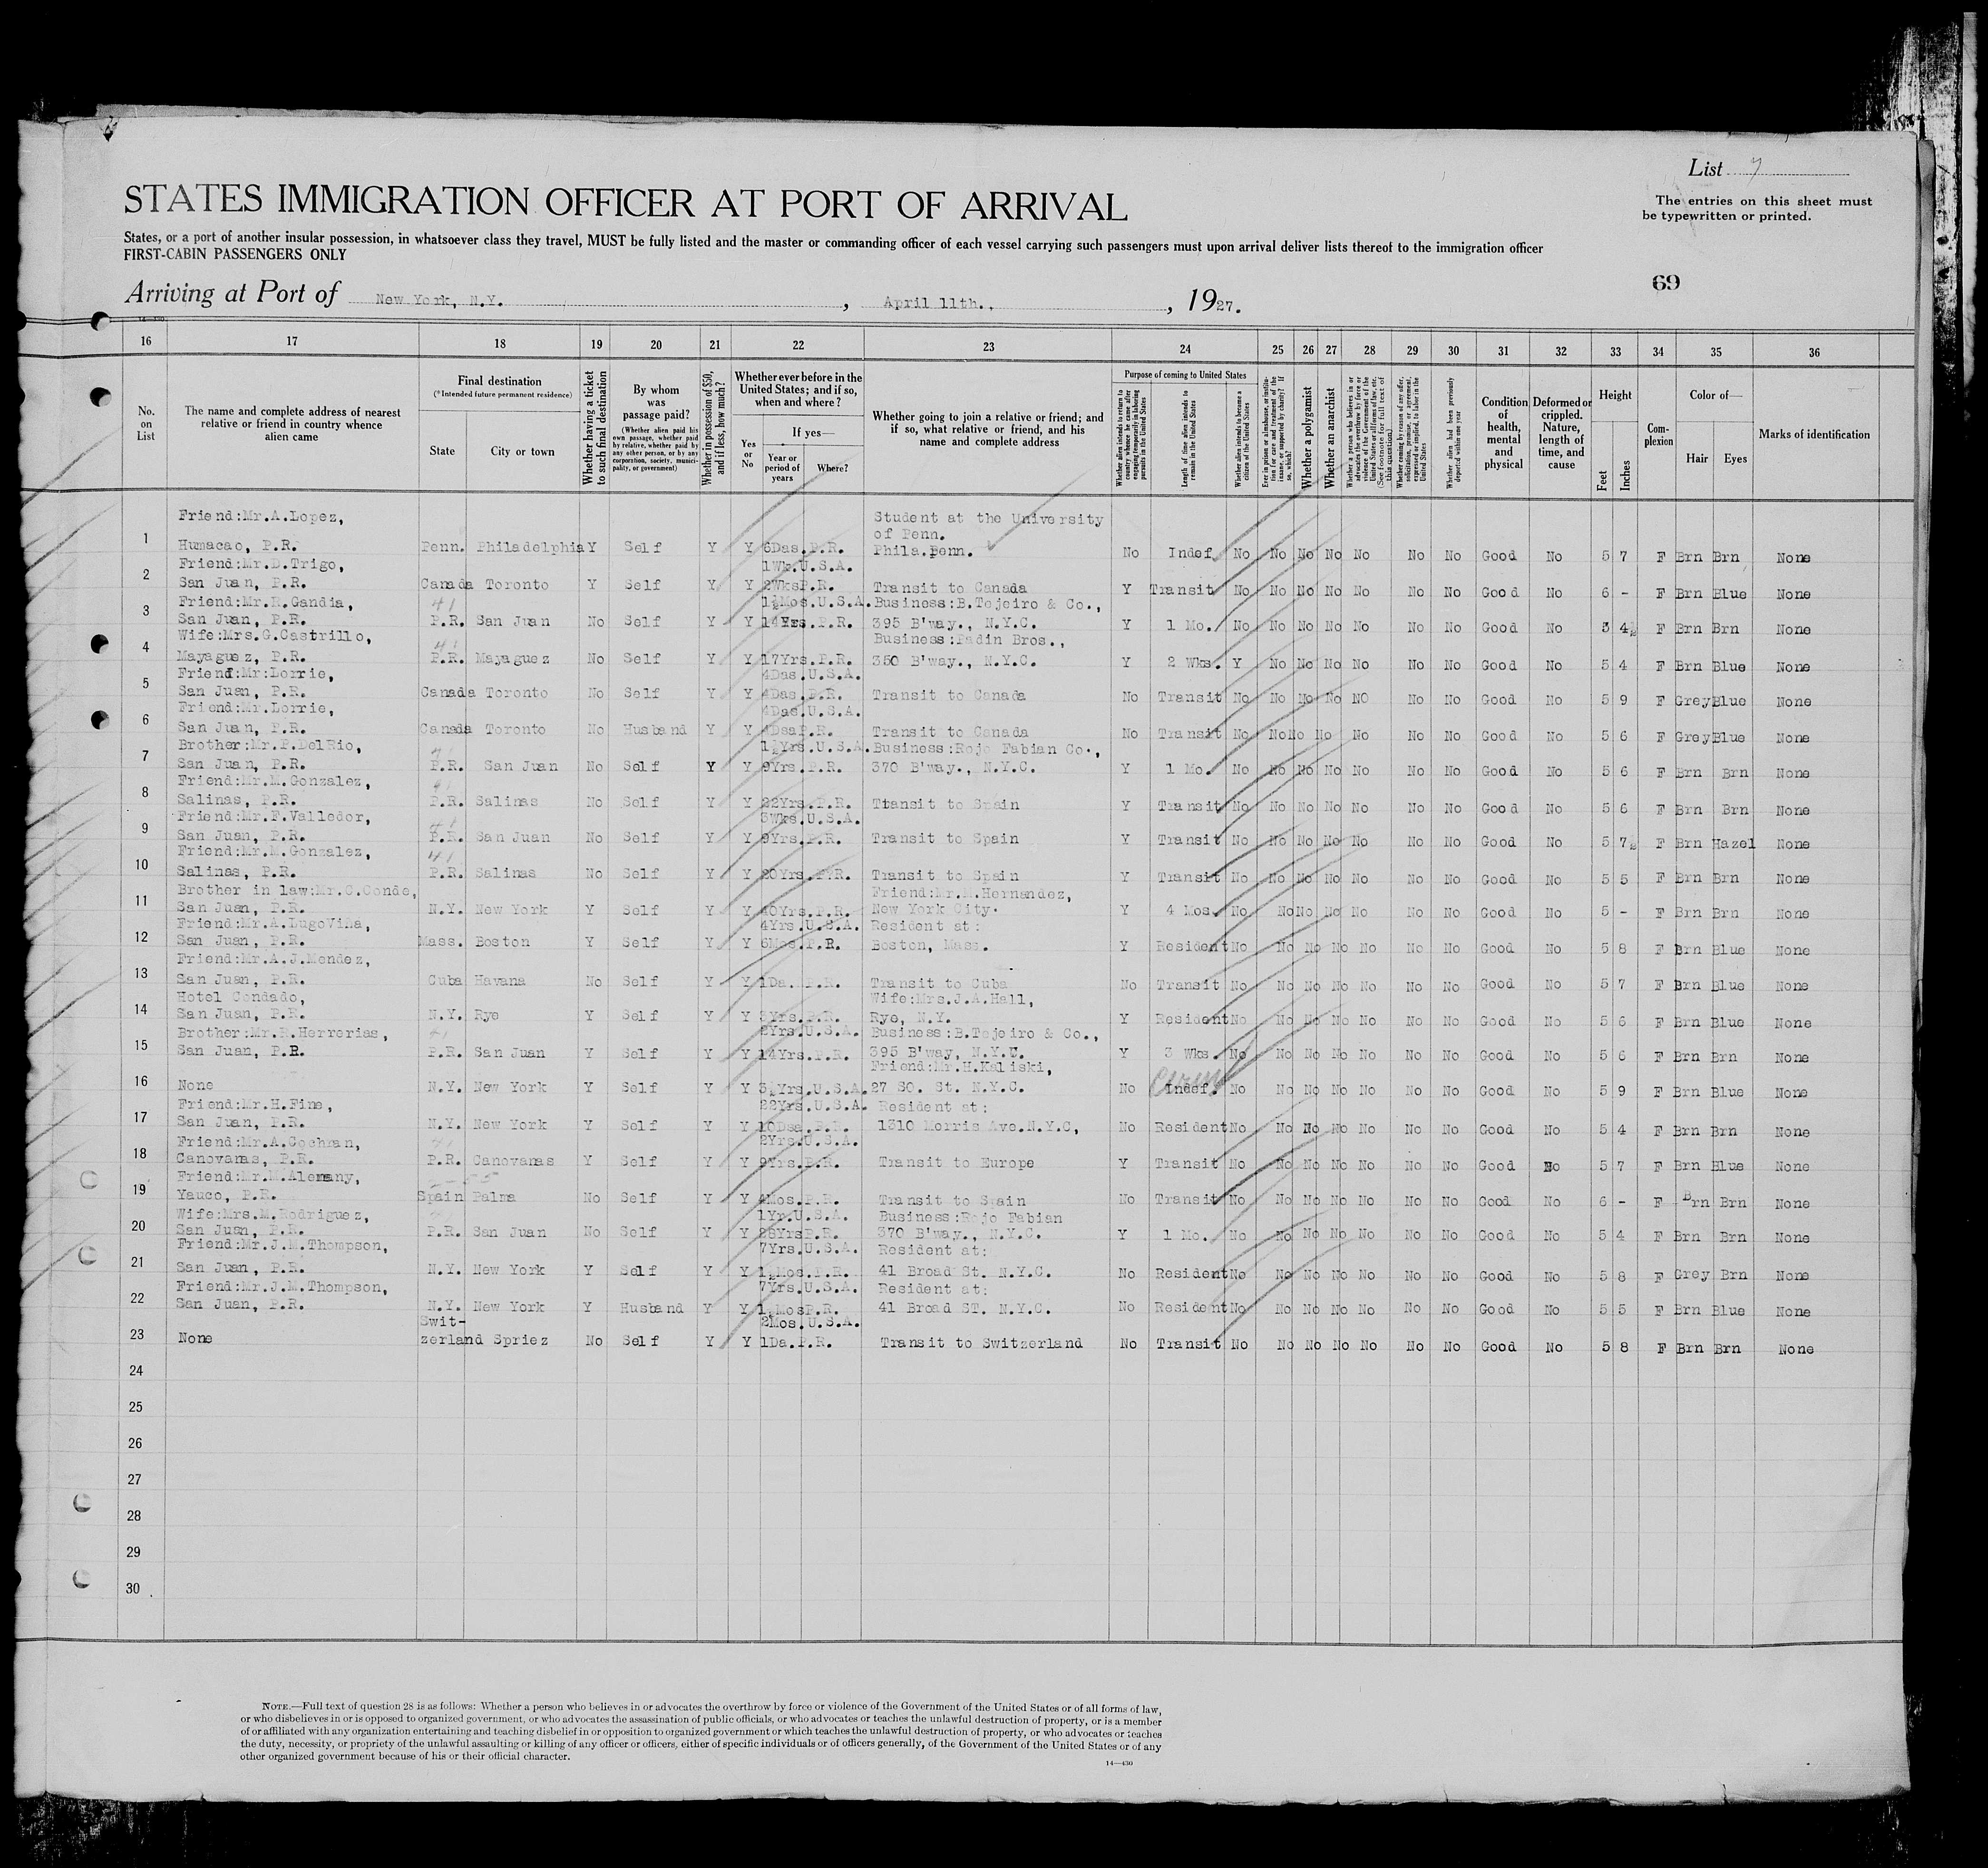 List 7
STATES IMMIGRATION OFFICER AT PORT OF ARRIVAL
The entries on this sheet must
be typewritten or printed.
States, or a port of another insular possession, in whatsoever class they travel, MUST be fully listed and the master or commanding officer of each vessel carrying such passengers must upon arrival deliver lists thereof to the immigration officer
FIRST-CABIN PASSENGERS ONLY
69
Arriving at Port of New York, N.Y. , April 11th., , 1927.
16 17 18 19 20 21 22 23 24 25 26 27 28 29 30 31 32 33 34 35 36
No. on List
The name and complete address of nearest relative or friend in country whence alien came
Final destination
(*Intended future permanent residence)
State City or town
Whether having a ticket to such final destination
By whom was passage paid?
(Whether alien paid his own passage, whether paid by relative, whether paid by any other person, or by any corporation, society, municipality, or government)
Whether in possession of $50, and if less, how much?
Whether ever before in the United States; and if so, when and where?
Yes or No
If yes—
Year or period of years Where?
Whether going to join a relative or friend; and if so, what relative or friend, and his name and complete address
Purpose of coming to United States
Whether alien intends to return to country whence he came after engaging temporarily in laboring pursuits in the United States
Length of time alien intends to remain in the United States
Whether alien intends to become a citizen of the United States
Ever in prison or almshouse, or institution for care and treatment of the insane, or supported by charity? If so, which?
Whether a polygamist
Whether an anarchist
Whether a person who believes in or advocates the overthrow by force or violence of the Government of the United States or all forms of law, etc. (See footnote for full text of this question)
Whether coming by reason of any offer, solicitation, promise, or agreement, expressed or implied, to labor in the United States
Whether alien had been previously deported within one year
Condition of health, mental and physical
Deformed or crippled. Nature, length of time, and cause
Height
Feet Inches
Complexion
Color of—
Hair Eyes
Marks of identification
Friend:Mr.A.Lopez, Student at the University
of Penn.
1 Humacao, P.R. Penn. Philadelphia Y Self Y Y 6Das.P.R. Phila.Penn. No Indef. No No No No No No No Good No 5 7 F Brn Brn None
Friend:Mr.D.Trigo, 1Wk.U.S.A.
2 San Juan, P.R. Canada Toronto Y Self Y Y 2WksP.R. Transit to Canada Y Transit No No No No No No No Good No 6 - F Brn Blue None
Friend:Mr.R.Gandia, 41 1½Mos.U.S.A. Business:B.Tejeiro & Co.,
3 San Juan, P.R. P.R. San Juan No Self Y Y 14Yrs.P.R. 395 B'way., N.Y.C. Y 1 Mo. No No No No No No No Good No 5 4½ F Brn Brn None
Wife:Mrs.G.Castrillo, 41 Business:Padin Bros.,
4 Mayaguez, P.R. P.R. Mayaguez No Self Y Y 17Yrs.P.R. 350 B'way., N.Y.C. Y 2 Wks. Y No No No No No No Good No 5 4 F Brn Blue None
Friend:Mr:Lorrie, 4Das.U.S.A.
5 San Juan, P.R. Canada Toronto No Self Y Y 4Das.P.R. Transit to Canada No Transit No No No No NO No No Good No 5 9 F Grey Blue None
Friend:Mr.Lorrie, 4Das.U.S.A.
6 San Juan, P.R. Canada Toronto No Husband Y Y 4DsaP.R. Transit to Canada No Transit No No No No No No No Good No 5 6 F Grey Blue None
Brother:Mr.P.DelRio, 1½Yrs.U.S.A. Business:Rojo Fabian Co.,
7 San Juan, P.R. P.R. San Juan No Self Y Y 9Yrs.P.R. 370 B'way., N.Y.C. Y 1 Mo. No No No No No No No Good No 5 6 F Brn Brn None
Friend:Mr.M.Gonzalez,
8 Salinas, P.R. P.R. Salinas No Self Y Y 22Yrs.P.R. Ttansit to Spain Y Transit No No No No No No No Good No 5 6 F Brn Brn None
Friend:Mr.F.Valledor, 3Wks.U.S.A.
9 San Juan, P.R. P.R. San Juan No Self Y Y 9Yrs.P.R. Transit to Spain Y Transit No No No No No No No Good No 5 7½ F Brn Hazel None
Friend:Mr.M.Gonzalez, 41
10 Salinas, P.R. P.R. Salinas No Self Y Y 20Yrs.P.R. Transit to Spain Y Transit No No No No No No No Good No 5 5 F Brn Brn None
Brother in law:Mr.G.Conde, Friend:Mr.M.Hernandez,
11 San Juan, P.R. N.Y. New York Y Self Y Y 40Yrs.P.R. New York City. Y 4 Mos. No No No No No No No Good No 5 - F Brn Brn None
Friend:Mr.A.LugoViña, 4Yrs.U.S.A. Resident at:
12 San Juan, P.R. Mass. Boston Y Self Y Y 6Mos.P.R. Boston, Mass. Y Resident No No No No No No No Good No 5 8 F Brn Blue None
Friend:Mr.A.J.Mendez,
13 San Juan, P.R. Cuba Havana No Self Y Y 1Da. P.R. Transit to Cuba No Transit No No No No No No No Good No 5 7 F Brn Blue None
Hotel Condado, Wife:Mrs.J.A.Hall,
14 San Juan, P.R. N.Y. Rye Y Self Y Y 3Yrs.P.R. Rye, N.Y. Y Resident No No No No No No No Good No 5 6 F Brn Blue None
Brother:Mr.R.Herrerias, 2Yrs.U.S.A. Business:B.Tejeiro & Co.,
15 San Juan, P.R. P.R. San Juan Y Self Y Y 14Yrs.P.R. 395 B'way, N.Y.C. Y 3 Wks. No No No No No No No Good No 5 6 F Brn Brn None
Friend:Mr.H.Kaliski,
16 None N.Y. New York Y Self Y Y 5½Yrs.U.S.A. 27 SO. St. N.Y.C. No Indef. No No No No No No No Good No 5 9 F Brn Blue None
Friend:Mr.H.Fine, 22Yrs.U.S.A. Resident at:
17 San Juan, P.R. N.Y. New York Y Self Y Y 10Dsa.P.R. 1310 Morris Ave.N.Y.C, No Resident No No No No No No No Good No 5 4 F Brn Brn None
Friend:Mr.A.Cochran, 2Yrs.U.S.A.
18 Canovanas, P.R. P.R. Canovanas Y Self Y Y 9Yrs.P.R. Transit to Europe Y Transit No No No No No No No Good No 5 7 F Brn Blue None
Friend:Mr.M.Alemany,
19 Yauco, P.R. Spain Palma No Self Y Y 4Mos.P.R. Transit to Spain No Transit No No No No No No No Good No 6 - F Brn Brn None
Wife:Mrs.M.Rodriguez, 1Yr.U.S.A. Business:Rojo Fabian
20 San Juan, P.R. P.R. San Juan No Self Y Y 28YrsP.R. 370 B'way., N.Y.C. Y 1 Mo. No No No No No No No Good No 5 4 F Brn Brn None
Friend:Mr.J.M.Thompson, 7Yrs.U.S.A. Resident at:
21 San Juan, P.R. N.Y. New York Y Self Y Y 1½Mos.P.R. 41 Broad St. N.Y.C. No Resident No No No No No No No Good No 5 8 F Grey Brn None
Friend:Mr.J.M.Thompson, 7Yrs.U.S.A. Resident at:
22 San Juan, P.R. N.Y. New York Y Husband Y Y 1½MosP.R. 41 Broad ST. N.Y.C. No Resident No No No No No No No Good No 5 5 F Brn Blue None
Swit- 2Mos.U.S.A.
23 None zerland Spriez No Self Y Y 1Da.P.R. Transit to Switzerland No Transit No No No No No No No Good No 5 8 F Brn Brn None
24
25
26
27
28
29
30
NOTE.—Full text of question 28 is as follows: Whether a person who believes in or advocates the overthrow by force or violence of the Government of the United States or of all forms of law,
or who disbelieves in or is opposed to organized government, or who advocates the assassination of public officials, or who advocates or teaches the unlawful destruction of property, or is a member
of or affiliated with any organization entertaining and teaching disbelief in or opposition to organized government or which teaches the unlawful destruction of property, or who advocates or teaches
the duty, necessity, or propriety of the unlawful assaulting or killing of any officer or officers, either of specific individuals or of officers generally, of the Government of the United States or of any
other organized government because of his or their official character.
14—430